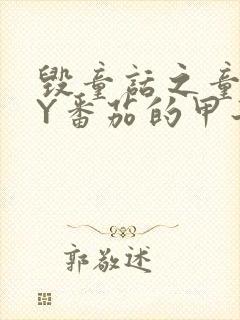 毁童话之童
Y番茄的甲
郭敬述